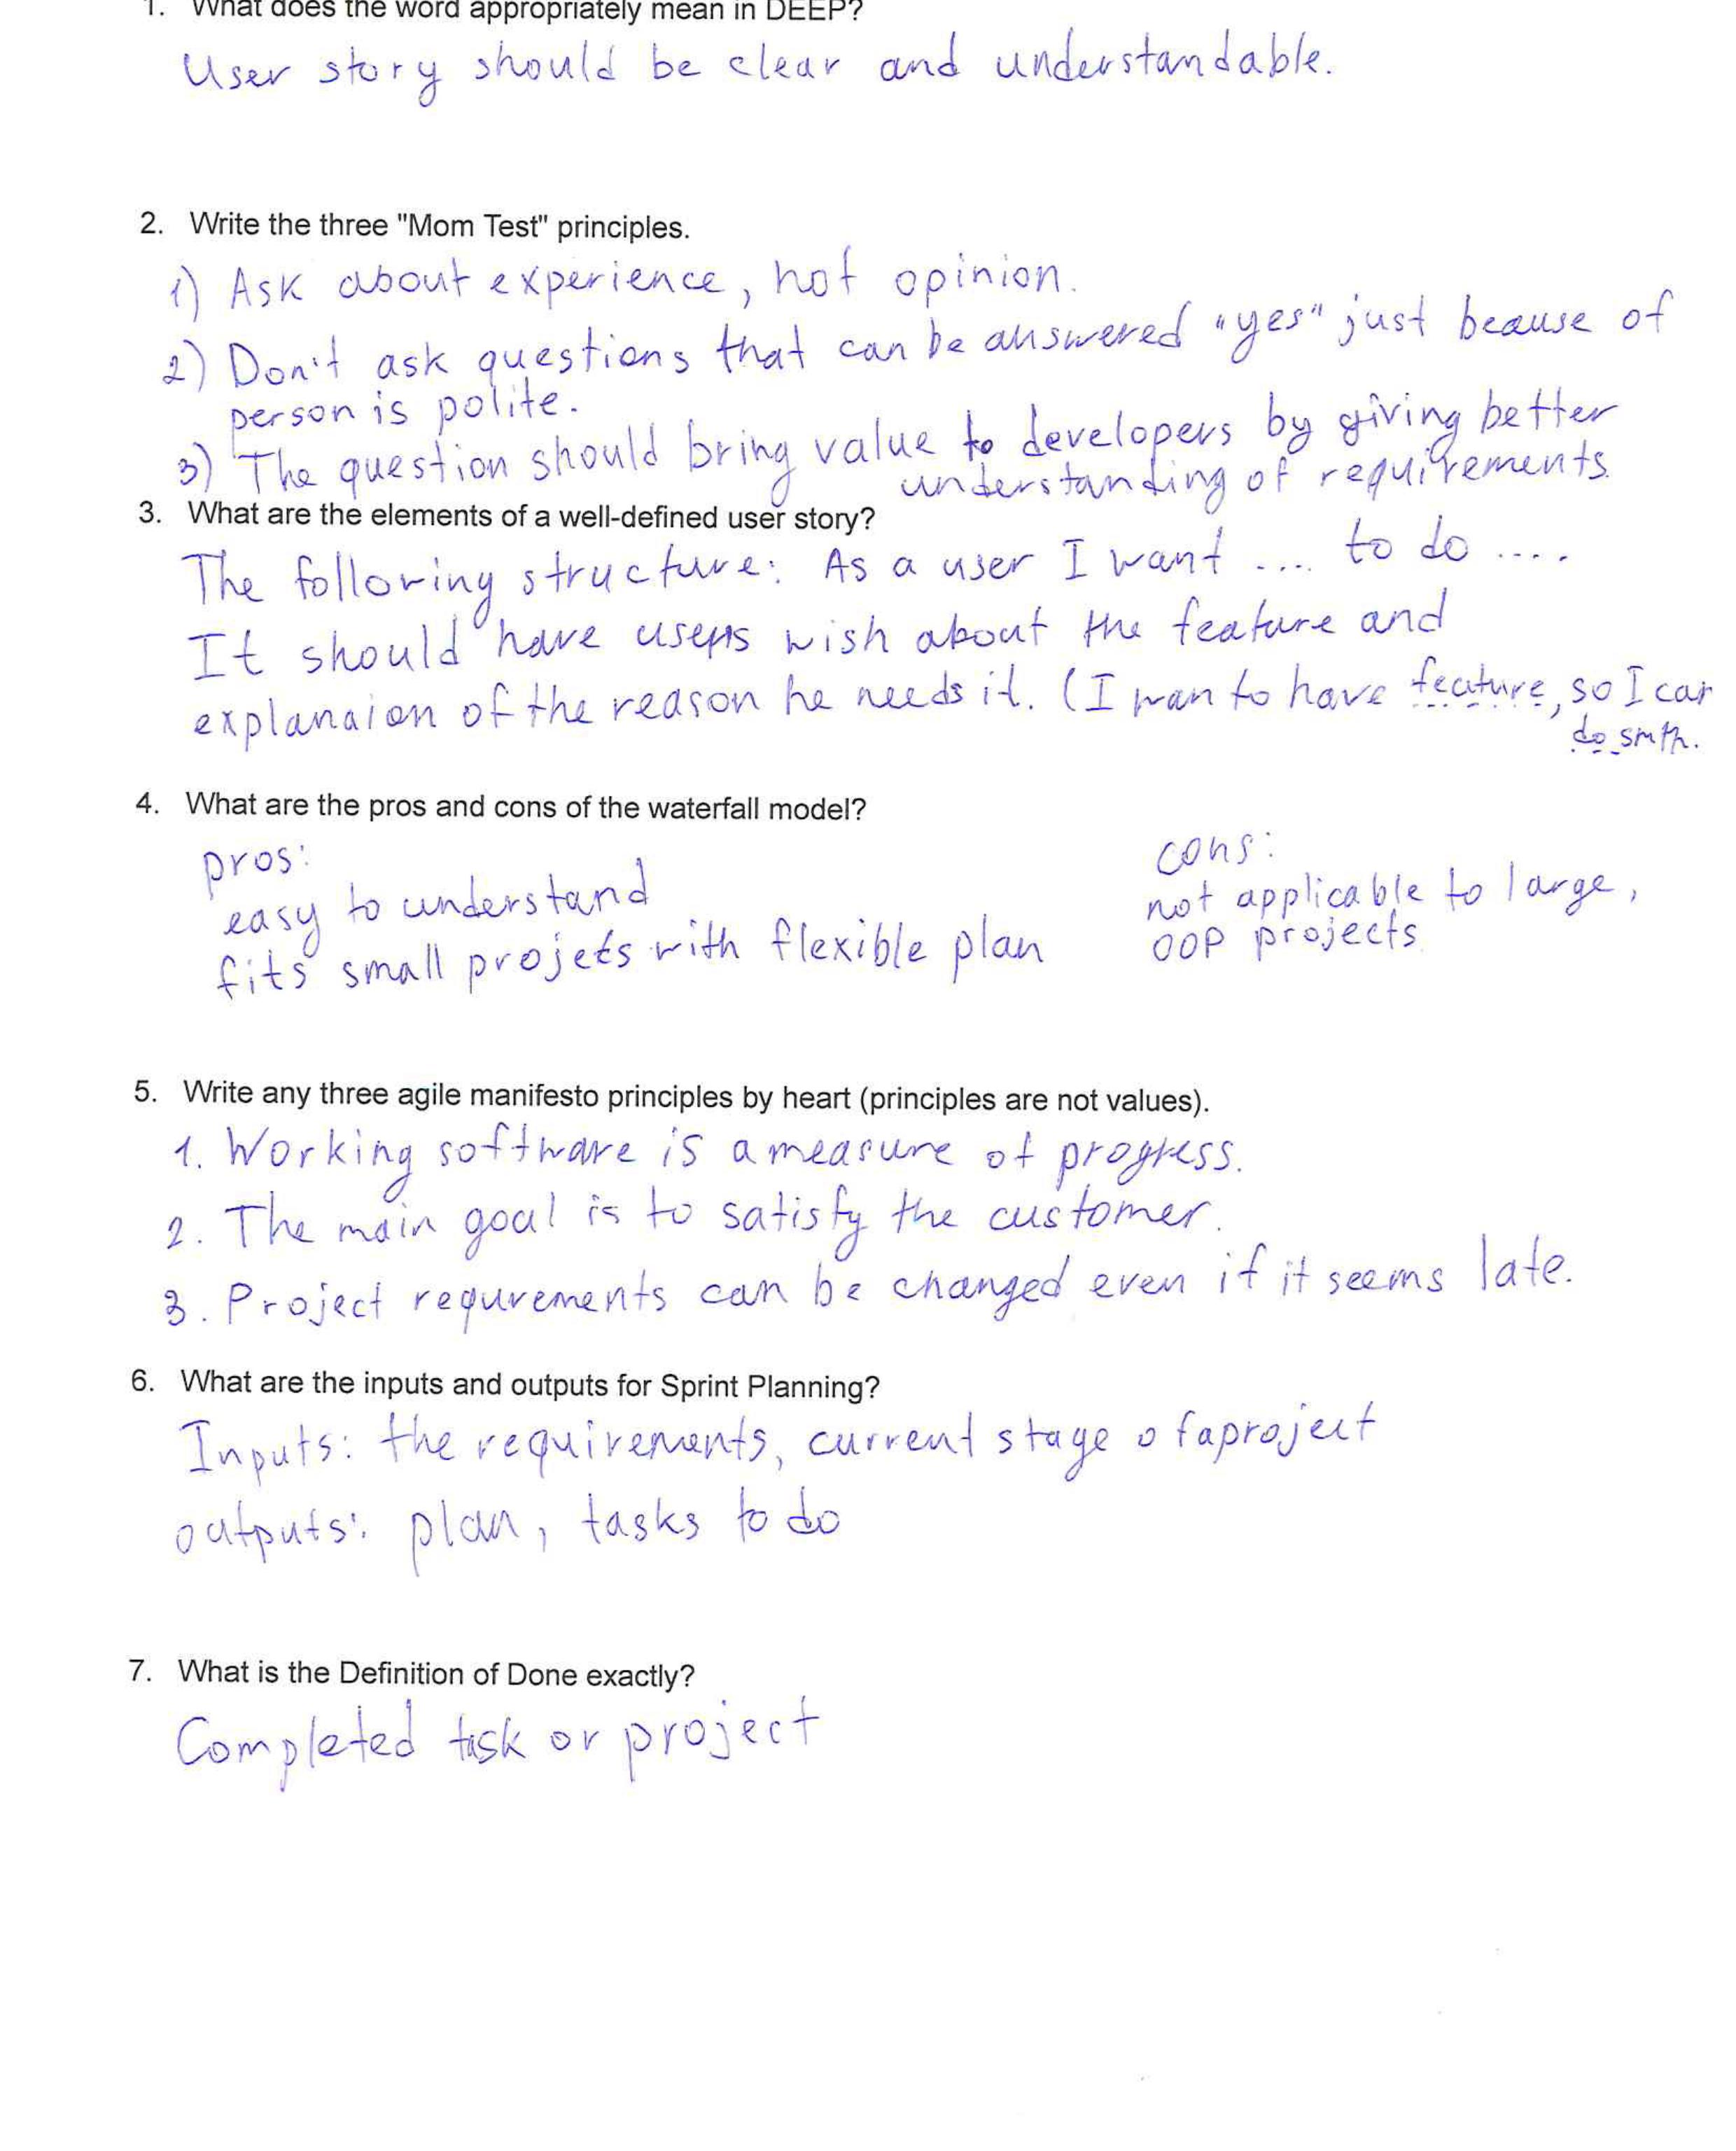 1. What does the word appropriately mean in DEEP?
User story should be clear and understandable.
2. Write the three "Mom Test" principles.
1) Ask about experience, not opinion.
2) Don't ask questions that can be answered "yes" just beause of
person is polite.
3) The question should bring value to developers by giving better
understanding of requirements.
3. What are the elements of a well-defined user story?
The folloring structure: As a user I want .... to do ....
It should have users wish about the feature and
explanaion of the reason he needs it. (I wan to have feature, so I can
do smth.
4. What are the pros and cons of the waterfall model?
pros:
easy to understand
fits small projets with flexible plan
cons:
not applicable to large,
OOP projects
5. Write any three agile manifesto principles by heart (principles are not values).
1. Working software is a measure of progress.
2. The main goal is to satisfy the customer.
3. Project requrements can be changed even if it seems late.
6. What are the inputs and outputs for Sprint Planning?
Inputs: the requirements, current stage of a project
outputs: plan, tasks to do
7. What is the Definition of Done exactly?
Completed task or project